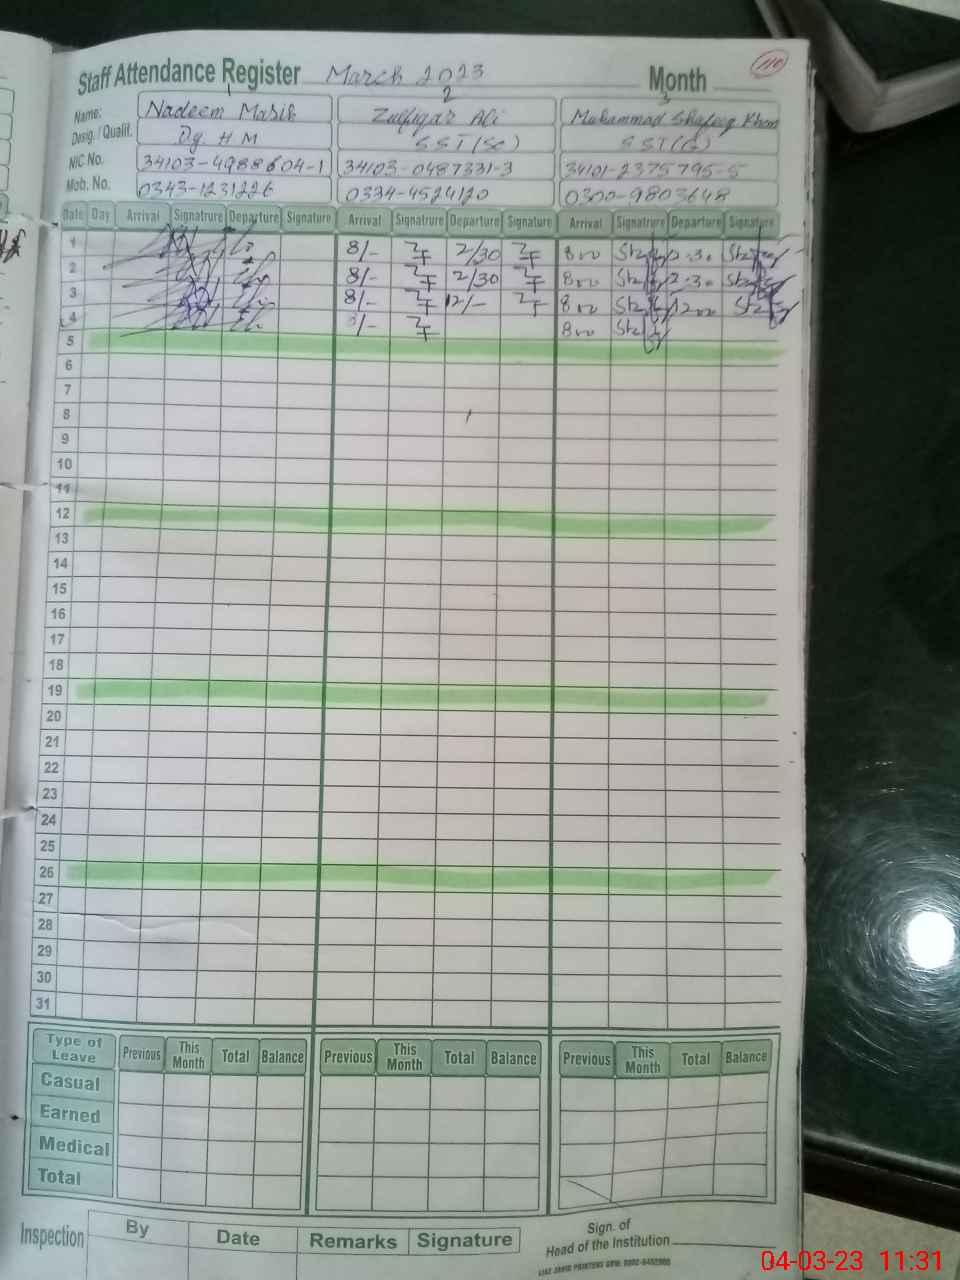 110
Staff Attendance Register March 2023 Month
1 2 3
Name: Nadeem Masih Zulfiqar Ali Muhammad Shafeeq Khan
Desig. / Qualif. Dy. H M SST(Sc) SST(G)
NIC No. 34103-4988604-1 34103-0487331-3 34101-2375795-5
Mob. No. 0343-1231226 0334-4524120 0300-9803648
Date Day Arrival Signatrure Departure Signature Arrival Signatrure Departure Signature Arrival Signatrure Departure Signature
1 8/- 2/30 800 2:30
2 8/- 2/30 800 2:30
3 8/- 12/- 800 1200
4 8/- 800
5
6
7
8
9
10
11
12
13
14
15
16
17
18
19
20
21
22
23
24
25
26
27
28
29
30
31
Type of Leave Previous This Month Total Balance Previous This Month Total Balance Previous This Month Total Balance
Casual
Earned
Medical
Total
Inspection By Date Remarks Signature
Sign. of
Head of the Institution
04-03-23 11:31